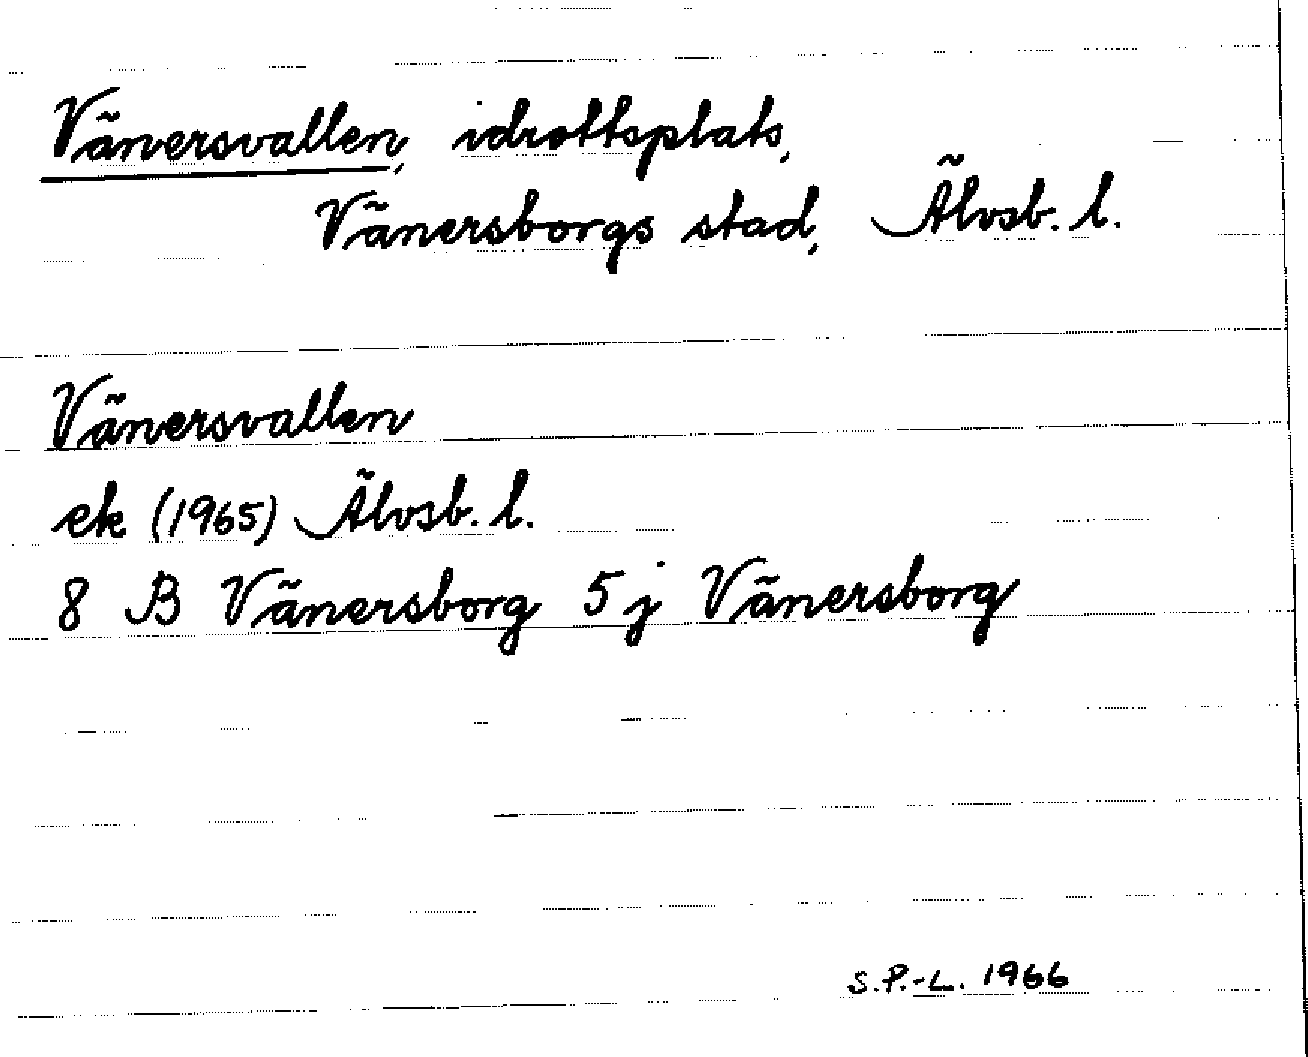 Vänersvallen, idrottsplats,
Vänersborgs stad, Älvsb. l.
Vänersvallen
ek (1965) Älvsb. l.
8 B Vänersborg 5 j Vänersborg
S.P.-L. 1966